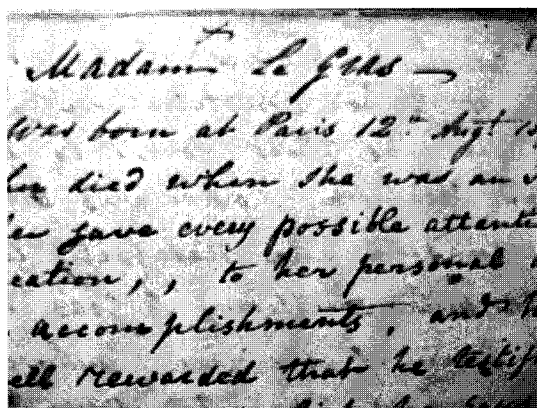 Madam Le Gras —
was born at Paris 12th Augt
died when she was an
gave every possible attenti
cation, , to her personal
accomplishments, and h
ell rewarded that he testif